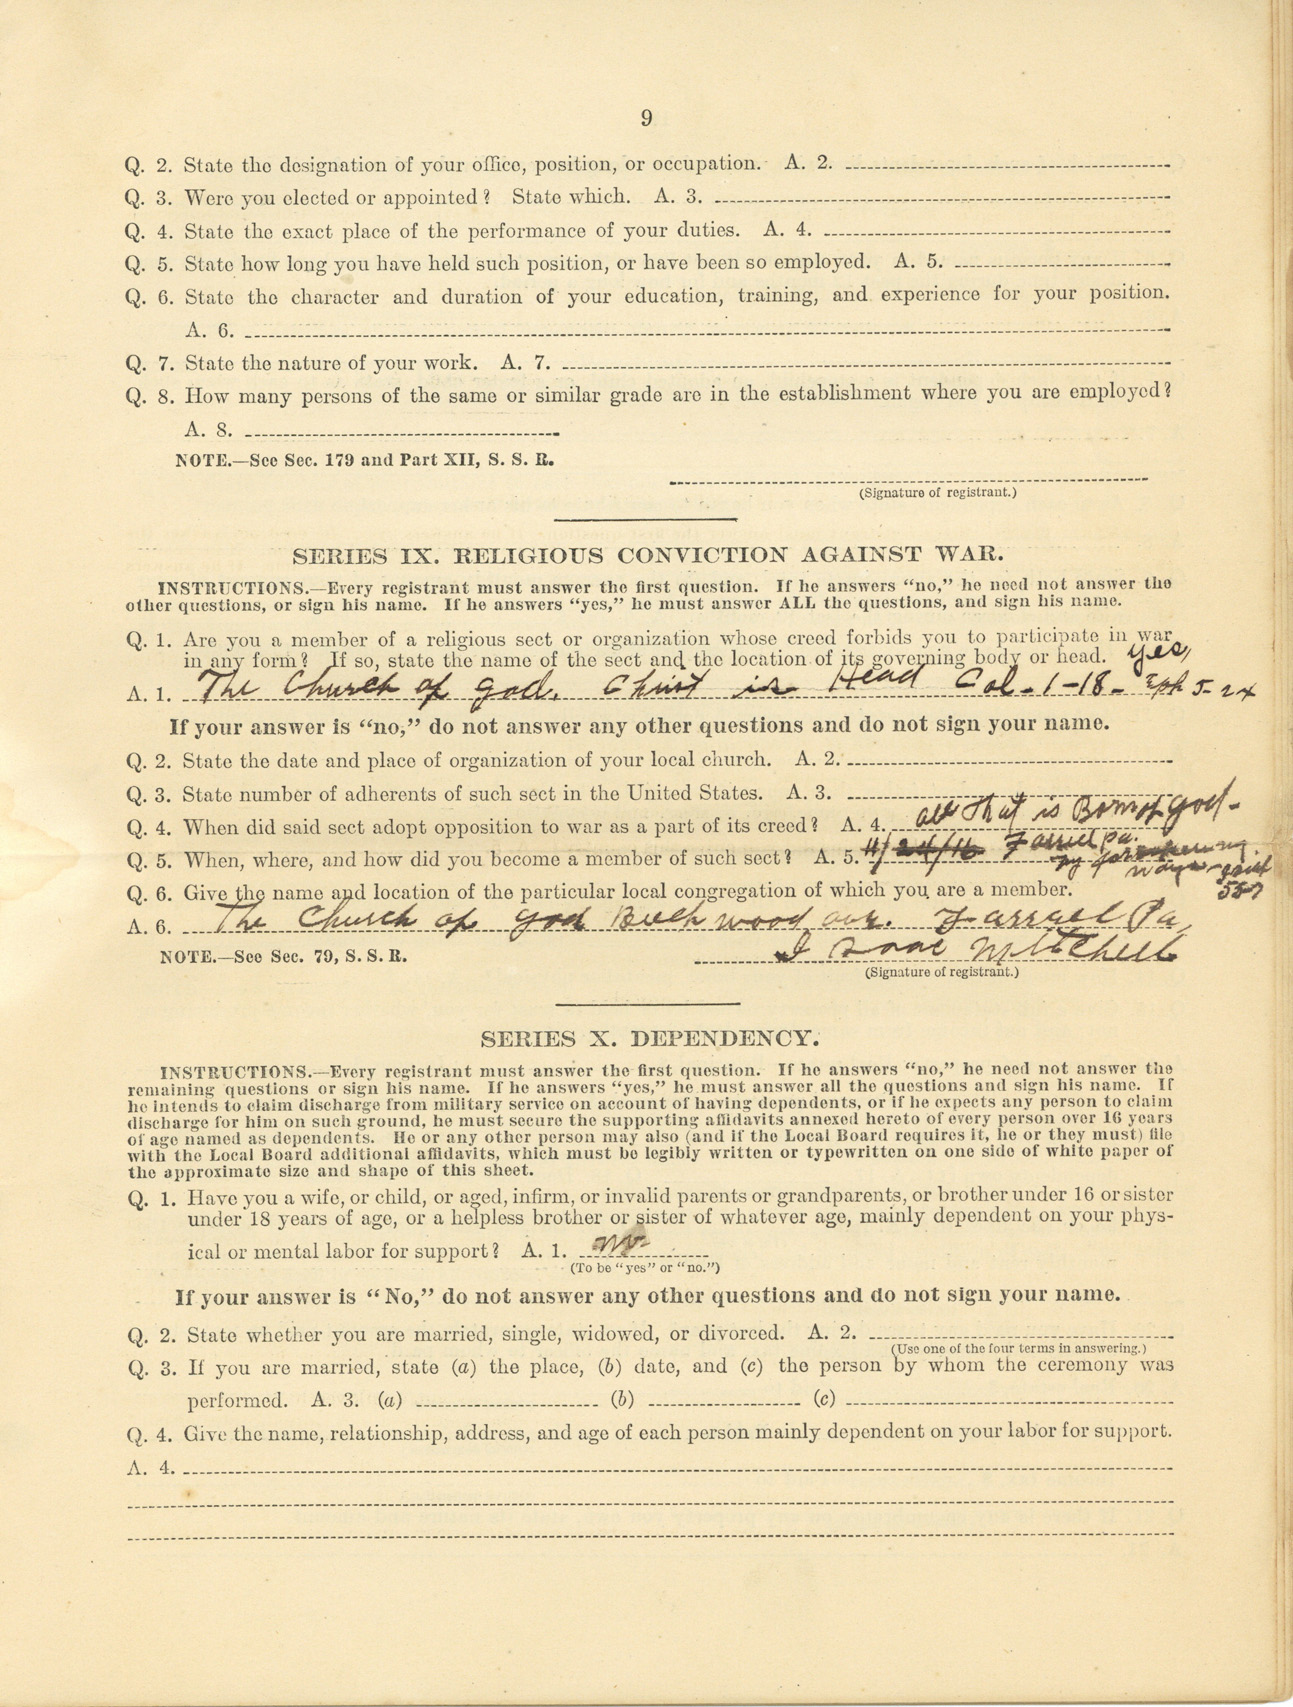 9
Q. 2. State the designation of your office, position, or occupation. A. 2.
Q. 3. Were you elected or appointed? State which. A. 3.
Q. 4. State the exact place of the performance of your duties. A. 4.
Q. 5. State how long you have held such position, or have been so employed. A. 5.
Q. 6. State the character and duration of your education, training, and experience for your position.
A. 6.
Q. 7. State the nature of your work. A. 7.
Q. 8. How many persons of the same or similar grade are in the establishment where you are employed?
A. 8.
NOTE.—See Sec. 179 and Part XII, S. S. R.
(Signature of registrant.)
SERIES IX. RELIGIOUS CONVICTION AGAINST WAR.
INSTRUCTIONS.—Every registrant must answer the first question. If he answers “no,” he need not answer the
other questions, or sign his name. If he answers “yes,” he must answer ALL the questions, and sign his name.
Q. 1. Are you a member of a religious sect or organization whose creed forbids you to participate in war
in any form? If so, state the name of the sect and the location of its governing body or head. yes,
A. 1. The Church of God. Christ is Head Col-1-18- Eph 5-24
If your answer is “no,” do not answer any other questions and do not sign your name.
Q. 2. State the date and place of organization of your local church. A. 2.
Q. 3. State number of adherents of such sect in the United States. A. 3.
all That is Born of God-
Q. 4. When did said sect adopt opposition to war as a part of its creed? A. 4.
Q. 5. When, where, and how did you become a member of such sect? A. 5. 11/24/16 Farrell Pa.
Q. 6. Give the name and location of the particular local congregation of which you are a member.
A. 6. The Church of God Beechwood ave. Farrael Pa,
NOTE.—See Sec. 79, S. S. R. Isaac Mitchell
(Signature of registrant.)
SERIES X. DEPENDENCY.
INSTRUCTIONS.—Every registrant must answer the first question. If he answers “no,” he need not answer the
remaining questions or sign his name. If he answers “yes,” he must answer all the questions and sign his name. If
he intends to claim discharge from military service on account of having dependents, or if he expects any person to claim
discharge for him on such ground, he must secure the supporting affidavits annexed hereto of every person over 16 years
of age named as dependents. He or any other person may also (and if the Local Board requires it, he or they must) file
with the Local Board additional affidavits, which must be legibly written or typewritten on one side of white paper of
the approximate size and shape of this sheet.
Q. 1. Have you a wife, or child, or aged, infirm, or invalid parents or grandparents, or brother under 16 or sister
under 18 years of age, or a helpless brother or sister of whatever age, mainly dependent on your phys-
ical or mental labor for support? A. 1. no
(To be “yes” or “no.”)
If your answer is “No,” do not answer any other questions and do not sign your name.
Q. 2. State whether you are married, single, widowed, or divorced. A. 2.
(Use one of the four terms in answering.)
Q. 3. If you are married, state (a) the place, (b) date, and (c) the person by whom the ceremony was
performed. A. 3. (a) (b) (c)
Q. 4. Give the name, relationship, address, and age of each person mainly dependent on your labor for support.
A. 4.